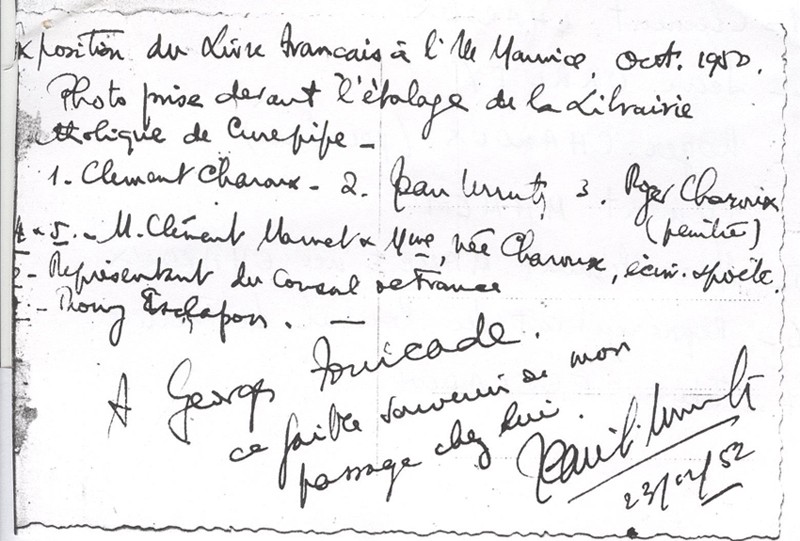 xposition du Livre Francais à l'Ile Maurice, Oct. 1950.
Photo prise devant l'étalage de la Librairie
tholique de Curepipe -
1. Clement Charoux - 2. Jean Urruty 3. Roger Charoux
(peintre)
4 & 5. - M. Clément Mamet & Mme, née Charoux, écriv. & poète.
- Représentant du Consul de France
- Esclapon. -
A Georges
ce faible souvenir de mon
passage chez lui.
Jean Urruty
23/ /52